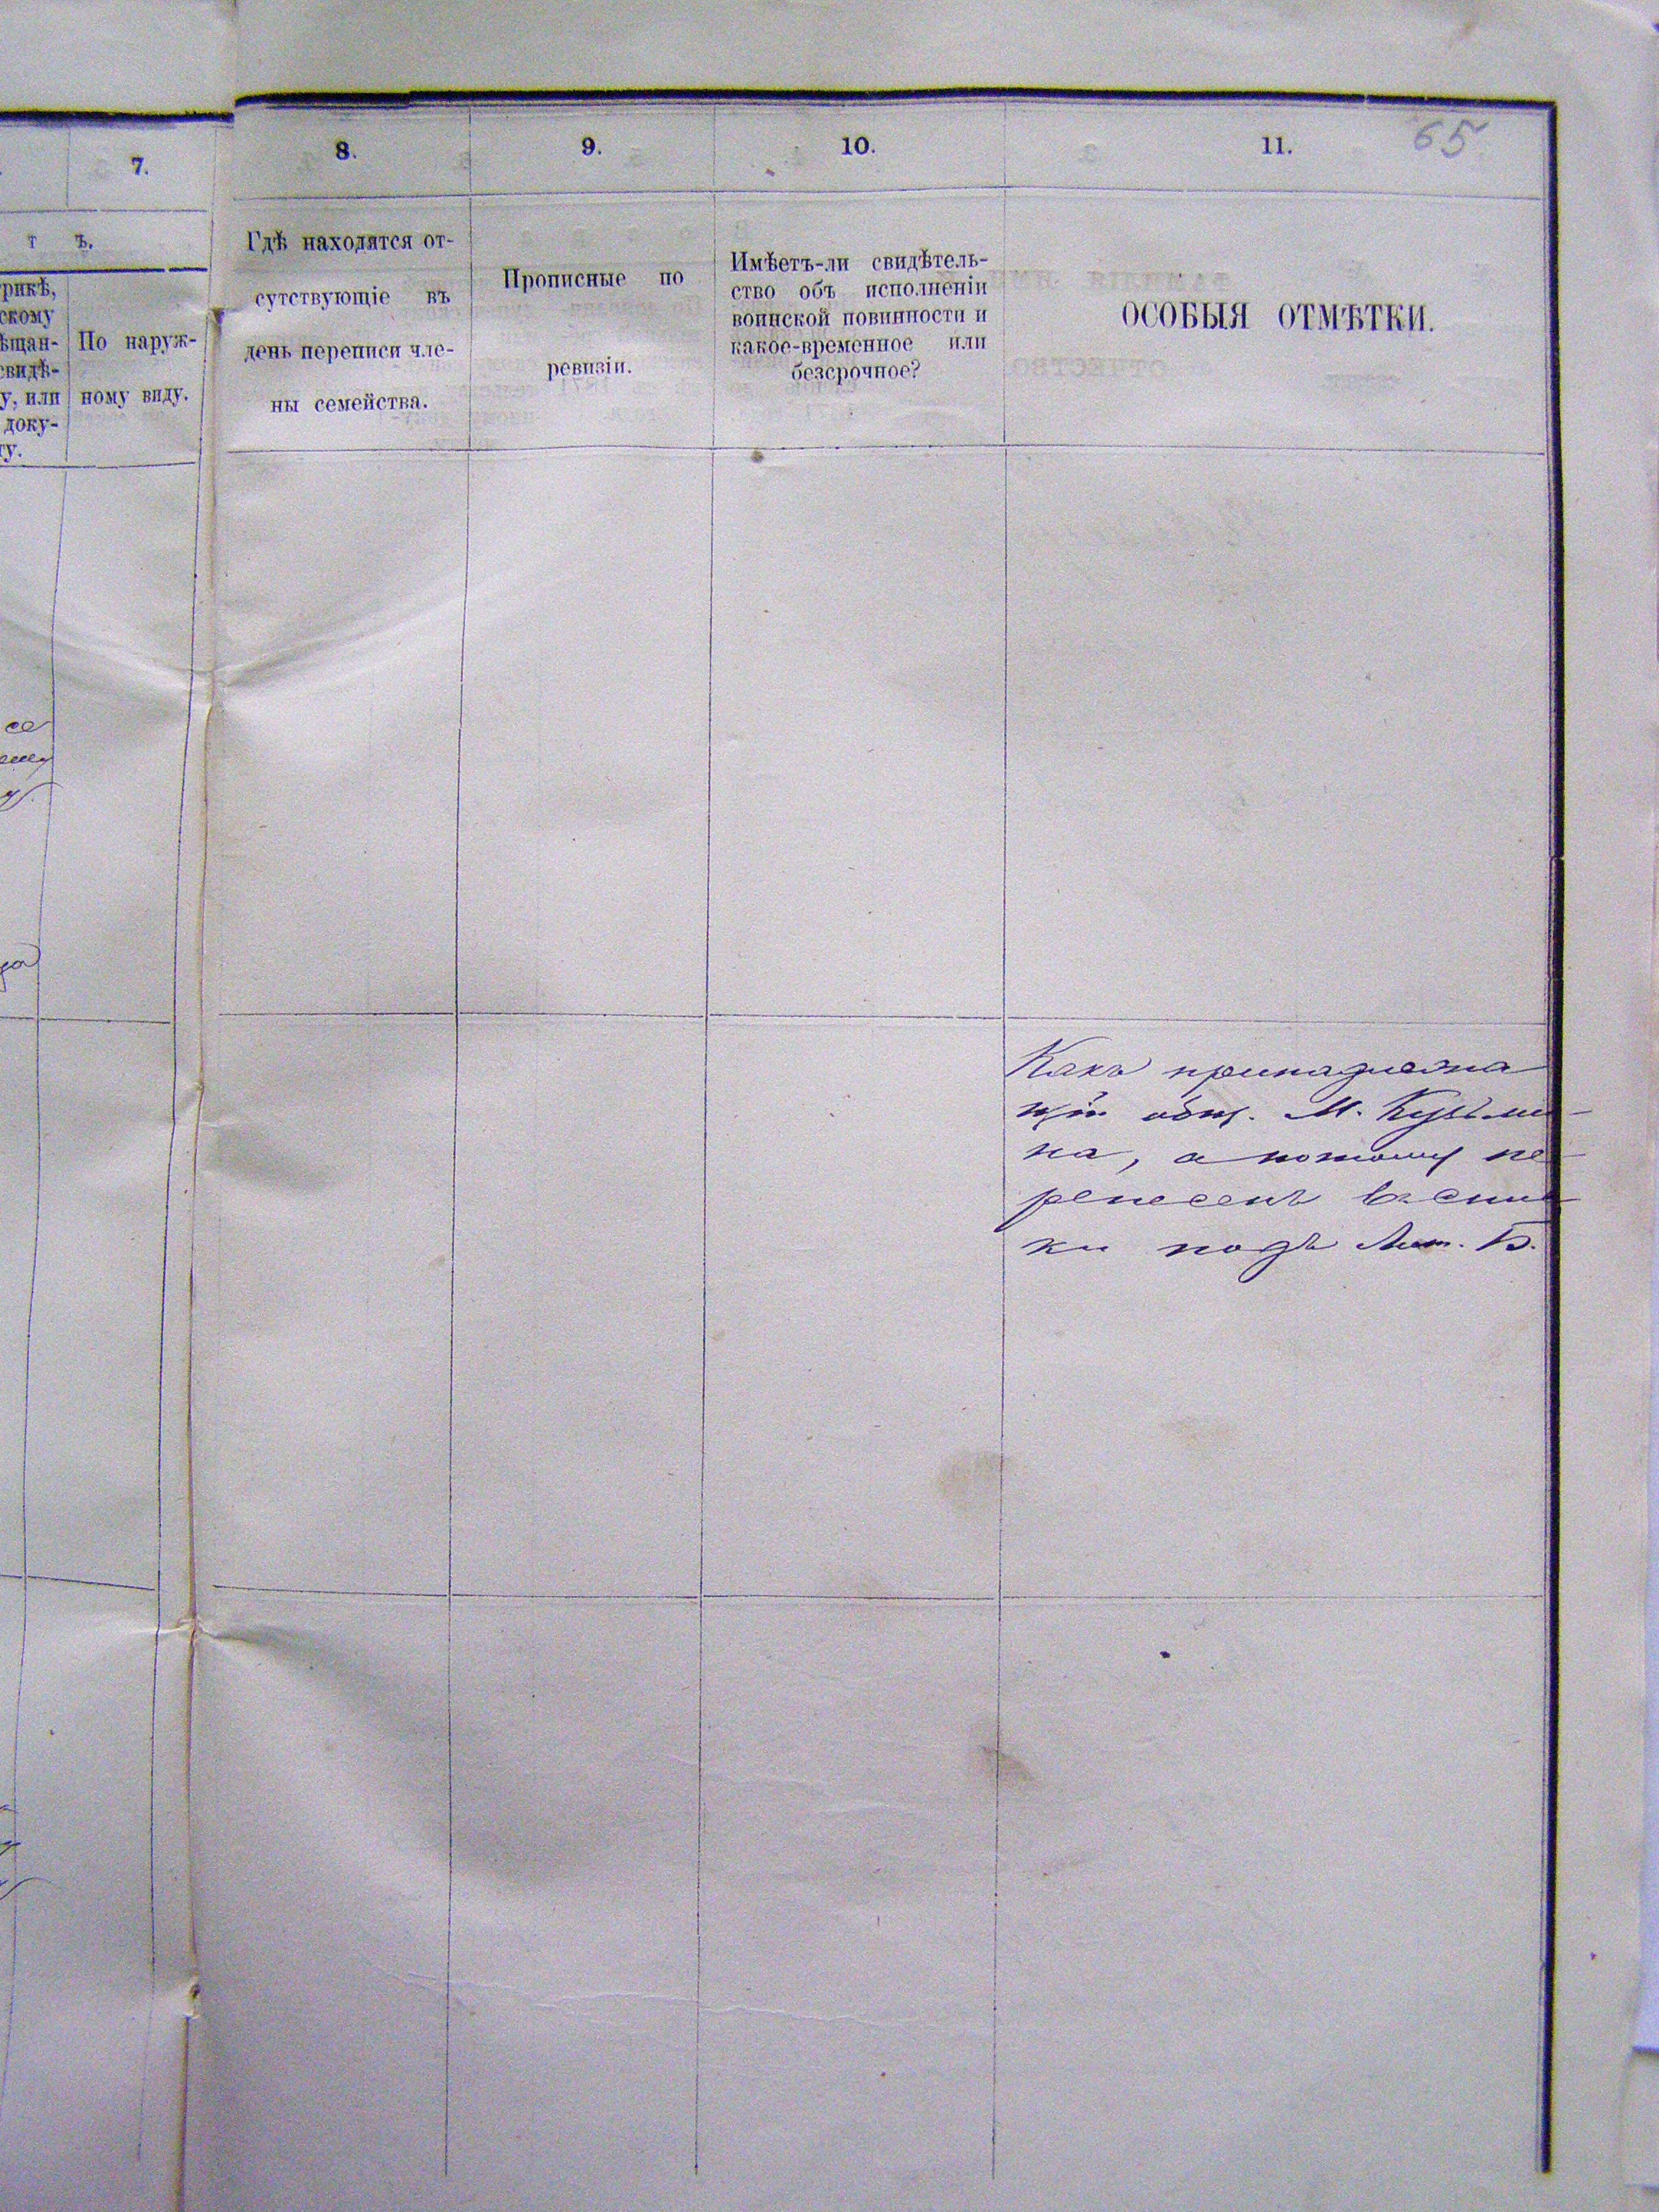 65
7.
8.
9.
10.
11.
т ъ.
рикѣ,
скому
ѣщан-
свидѣ-
у, или
доку-
ту.
По наруж-
ному виду.
Гдѣ находятся от-
сутствующіе въ
день переписи чле-
ны семейства.
Прописные по
ревизіи.
Имѣетъ-ли свидѣтель-
ство объ исполненіи
воинской повинности и
какое-временное или
безсрочное?
ОСОБЫЯ ОТМѢТКИ.
Какъ принадлежа
щій общ. М. Кузьми-
на, а потому пе-
ренесенъ въ спис-
ки подъ Лит. Б.